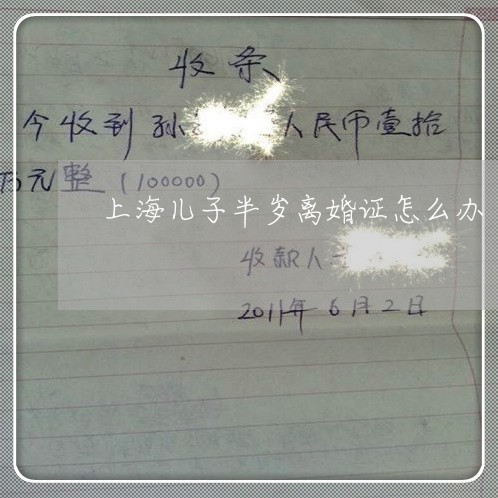 收条
今收到孙 人民币壹拾
万元整(100000)
上海儿子半岁离婚证怎么办
收款人
2011年6月2日